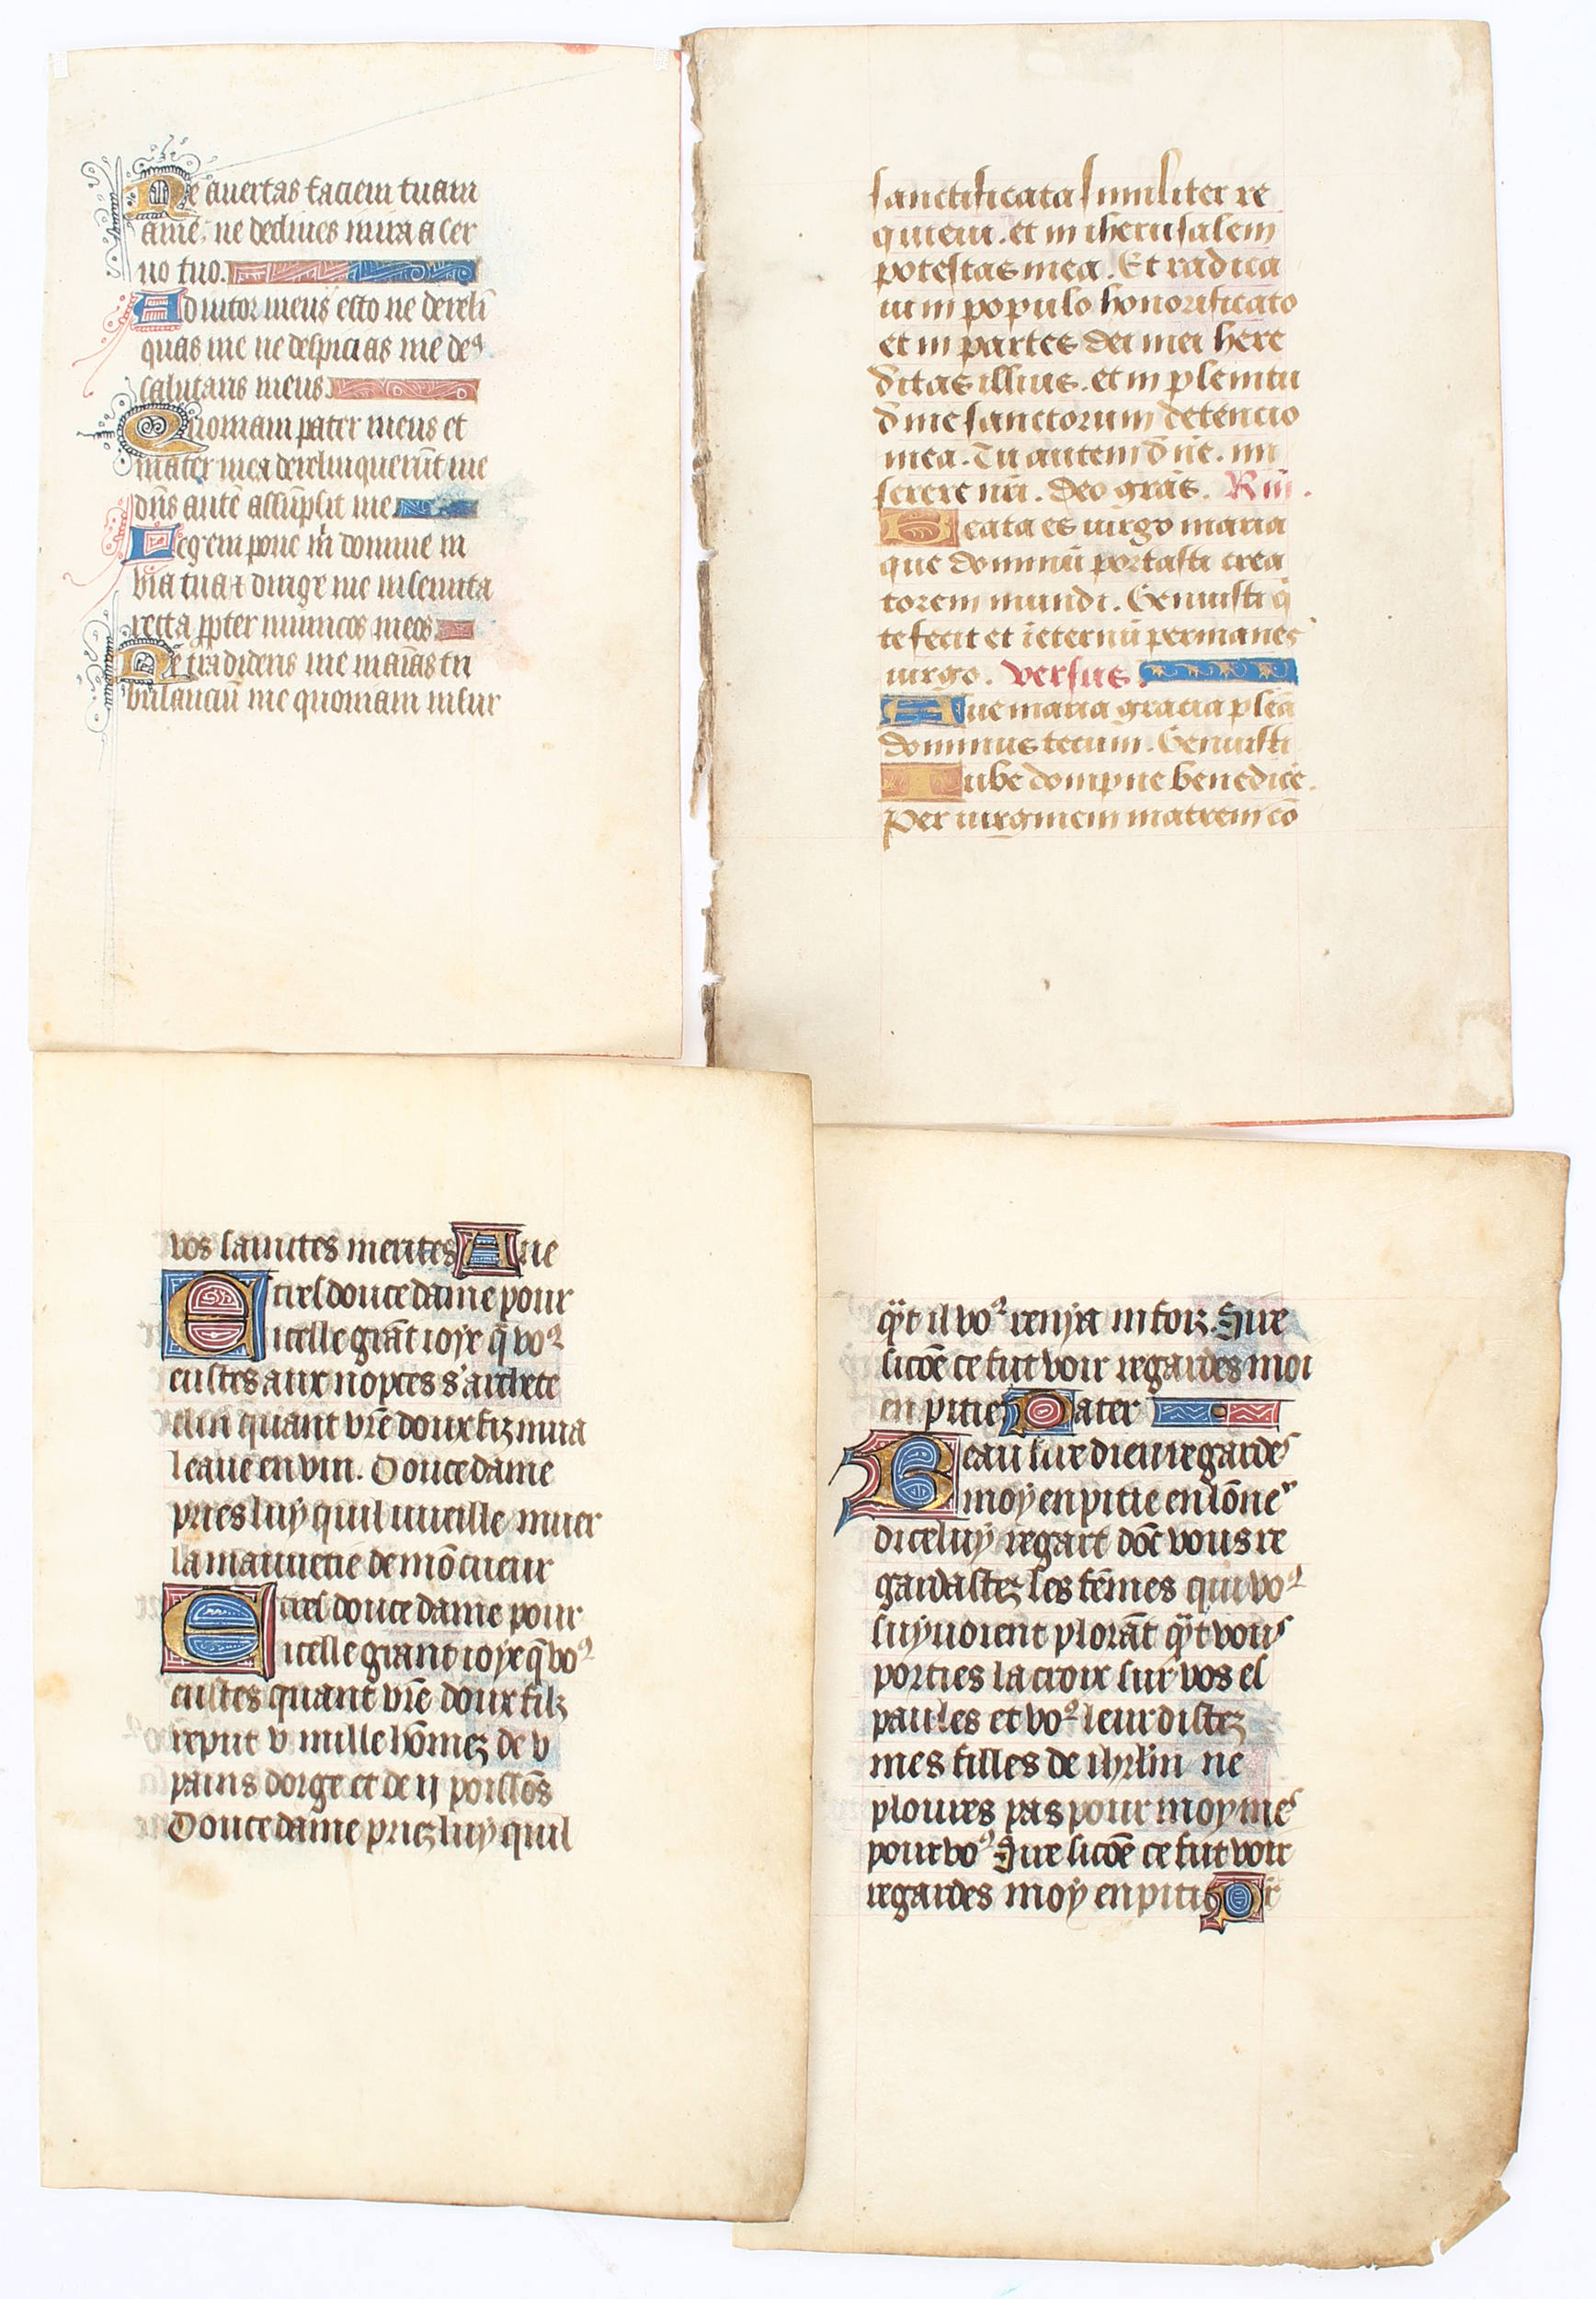 Ne auertas faciem tuam
a me, ne declines in ira a ser
uo tuo.
Adiutor meus esto ne dereli
quas me ne despicias me deꝰ
salutaris meus.
Quoniam pater meus et
mater mea derelinquerūt me
dn̄s autē assūpsit me
Legem pone m̄ domine in
via tua ⁊ dirige me in semita
recta ꝓpter inimicos meos
Ne tradideris me in aīas tri
bulanciū me quoniam insur
sanctificata similiter re
quieui. et in iherusalem
potestas mea. Et radica
ui in populo honorificato
et in partes dei mei here
ditas illius. et in plenitu
dine sanctorum detencio
mea. Tu autem dn̄e. mi
serere nr̄i. Deo grās. R
Beata es uirgo maria
que dominū portasti crea
torem mundi. Genuisti q̄
te fecit et ieternū permanes
uirgo. versus.
Aue maria gracia plēa
dominus tecum. Genuisti
Iube dompne benedice.
Per uirginem matrem cō
vos sainctes merites Aue
E tresdoulce dame pour
icelle grāt ioye q̄ voꝰ
eustes aux nopces s' archete
clin quant vr̄e doux fiz mua
leaue en vin. Doulce dame
pries luy quil vueille muer
la mauuetie de mō cueur
E tres doulce dame pour
icelle grant ioye q̄ voꝰ
eustes quant vr̄e doux filz
reput v mille hōmez de v
pains dorge et de ij poissōs
Doulce dame priez luy quil
qͣt il voꝰ renya iij foiz. Sire
sicōe ce fut voir regardes moi
en pitie Pater
Beau sire dieu regardes
moy en pitie en lōneʳ
diceluy regart dōt vous re
gardastez les fēmes qui voꝰ
suyuoient plorāt qͣt vous
porties la croix sur vos es
paules et voꝰ leur distez
mes filles de ihrlm̄ ne
ploures pas pour moy mes
pour voꝰ Sire sicōe ce fut voir
regardes moy en pitie Pr̄